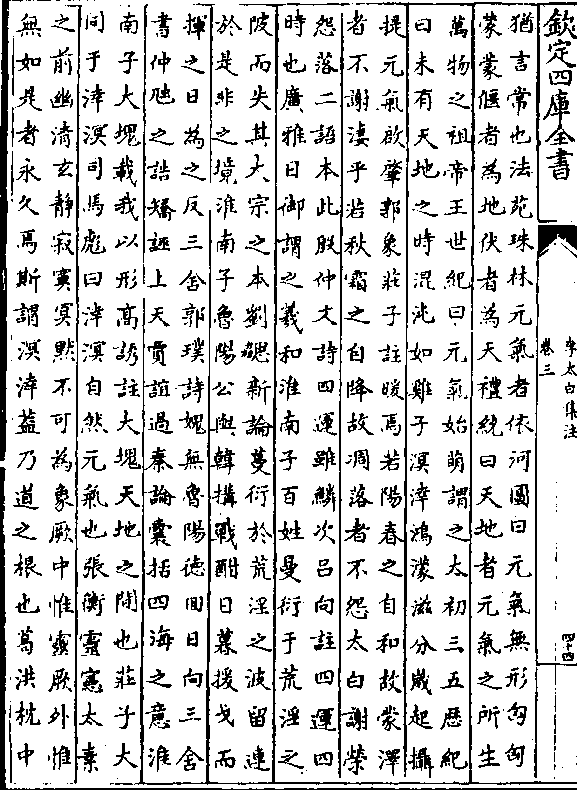 欽定四庫全書
李太白集注
卷三
四十四
猶言常也法苑珠林元氣者依河圖曰元氣無形匈匈
蒙蒙偃者為地伏者為天禮統曰天地者元氣之所生
萬物之祖帝王世紀曰元氣始萌謂之太初三五歷紀
曰未有天地之時混沌如雞子溟涬鴻濛滋分歲起攝
提元氣啟肇郭象莊子註暖焉若陽春之自和故蒙澤
者不謝淒乎若秋霜之自降故凋落者不怨太白謝榮
怨落二語本此殷仲文詩四運雖鱗次呂向註四運四
時也廣雅曰御謂之羲和淮南子百姓曼衍于荒淫之
陂而失其大宗之本劉勰新論蔓衍於荒淫之波留連
於是非之境淮南子魯陽公與韓搆戰酣日暮援戈而
揮之日為之反三舍郭璞詩愧無魯陽德回日向三舍
書仲虺之誥矯誣上天賈誼過秦論囊括四海之意淮
南子大塊載我以形高誘註大塊天地之間也莊子大
同于涬溟司馬彪曰涬溟自然元氣也張衡靈憲太素
之前幽清玄靜寂寞冥默不可為象厥中惟靈厥外惟
無如是者永久焉斯謂溟涬蓋乃道之根也葛洪枕中